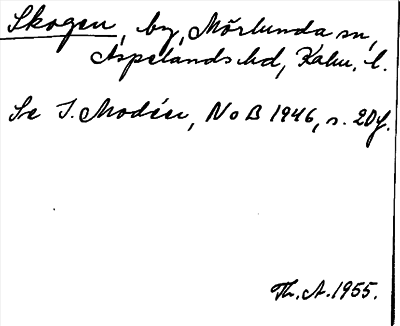 Skogen, by, Mörlunda sn,
Aspelands hd, Kalm. l.
Se I. Modéer, NoB 1946, s. 20f.
Th. A. 1955.